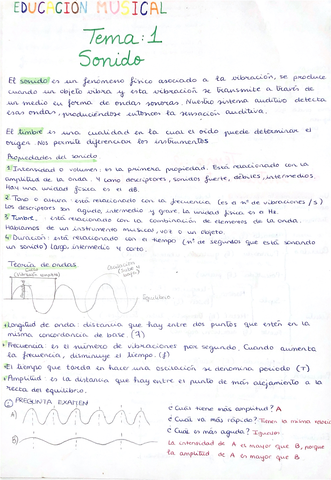 EDUCACION MUSICAL
Tema: 1
Sonido
El sonido es un fenómeno físico asociado a la vibración, se produce
cuando un objeto vibra y esta vibración se transmite a través de
un medio en forma de ondas sonoras. Nuestro sistema auditivo detecta
esas ondas, produciéndose entonces la sensación auditiva.
El timbre es una cualidad en la cual el oído puede determinar el
origen. Nos permite diferenciar los instrumentos
Propiedades del sonido
1. Intensidad o volumen: es la primera propiedad. Está relacionado con la
amplitud de la onda. Y como descriptores, sonidos fuerte, débiles, intermedios.
Hay una unidad física es el dB.
2. Tono o altura: está relacionado con la frecuencia (es a nº de vibraciones /s)
Los descriptores son agudo, intermedio y grave. La unidad física es a Hz.
3. Timbre: está relacionado con la combinación de elementos de la onda.
Hablamos de un instrumento musical, voz o un objeto.
4. Duración: está relacionado con el tiempo (nº de segundos que está sonando
un sonido) largo, intermedio y corto.
Teoría de ondas
Ciclo
(vibración completa)
Equilibrio
Longitud de onda: distancia que hay entre dos puntos que estén en la
misma concordancia de base.
Frecuencia: es el número de vibraciones por segundo. Cuando aumenta
la frecuencia, disminuye el tiempo. (f)
El tiempo que tarda en hacer una oscilación se denomina periodo (T)
Amplitud: es la distancia que hay entre el punto de más alejamiento a la
recta del equilibrio.
PREGUNTA EXAMEN
A)
B)
¿Cuál tiene más amplitud? A
¿Cuál va más rápido? Tienen la misma
¿Cuál es más aguda? Iguales
La intensidad de A es mayor que B, porque
la amplitud de A es mayor que B